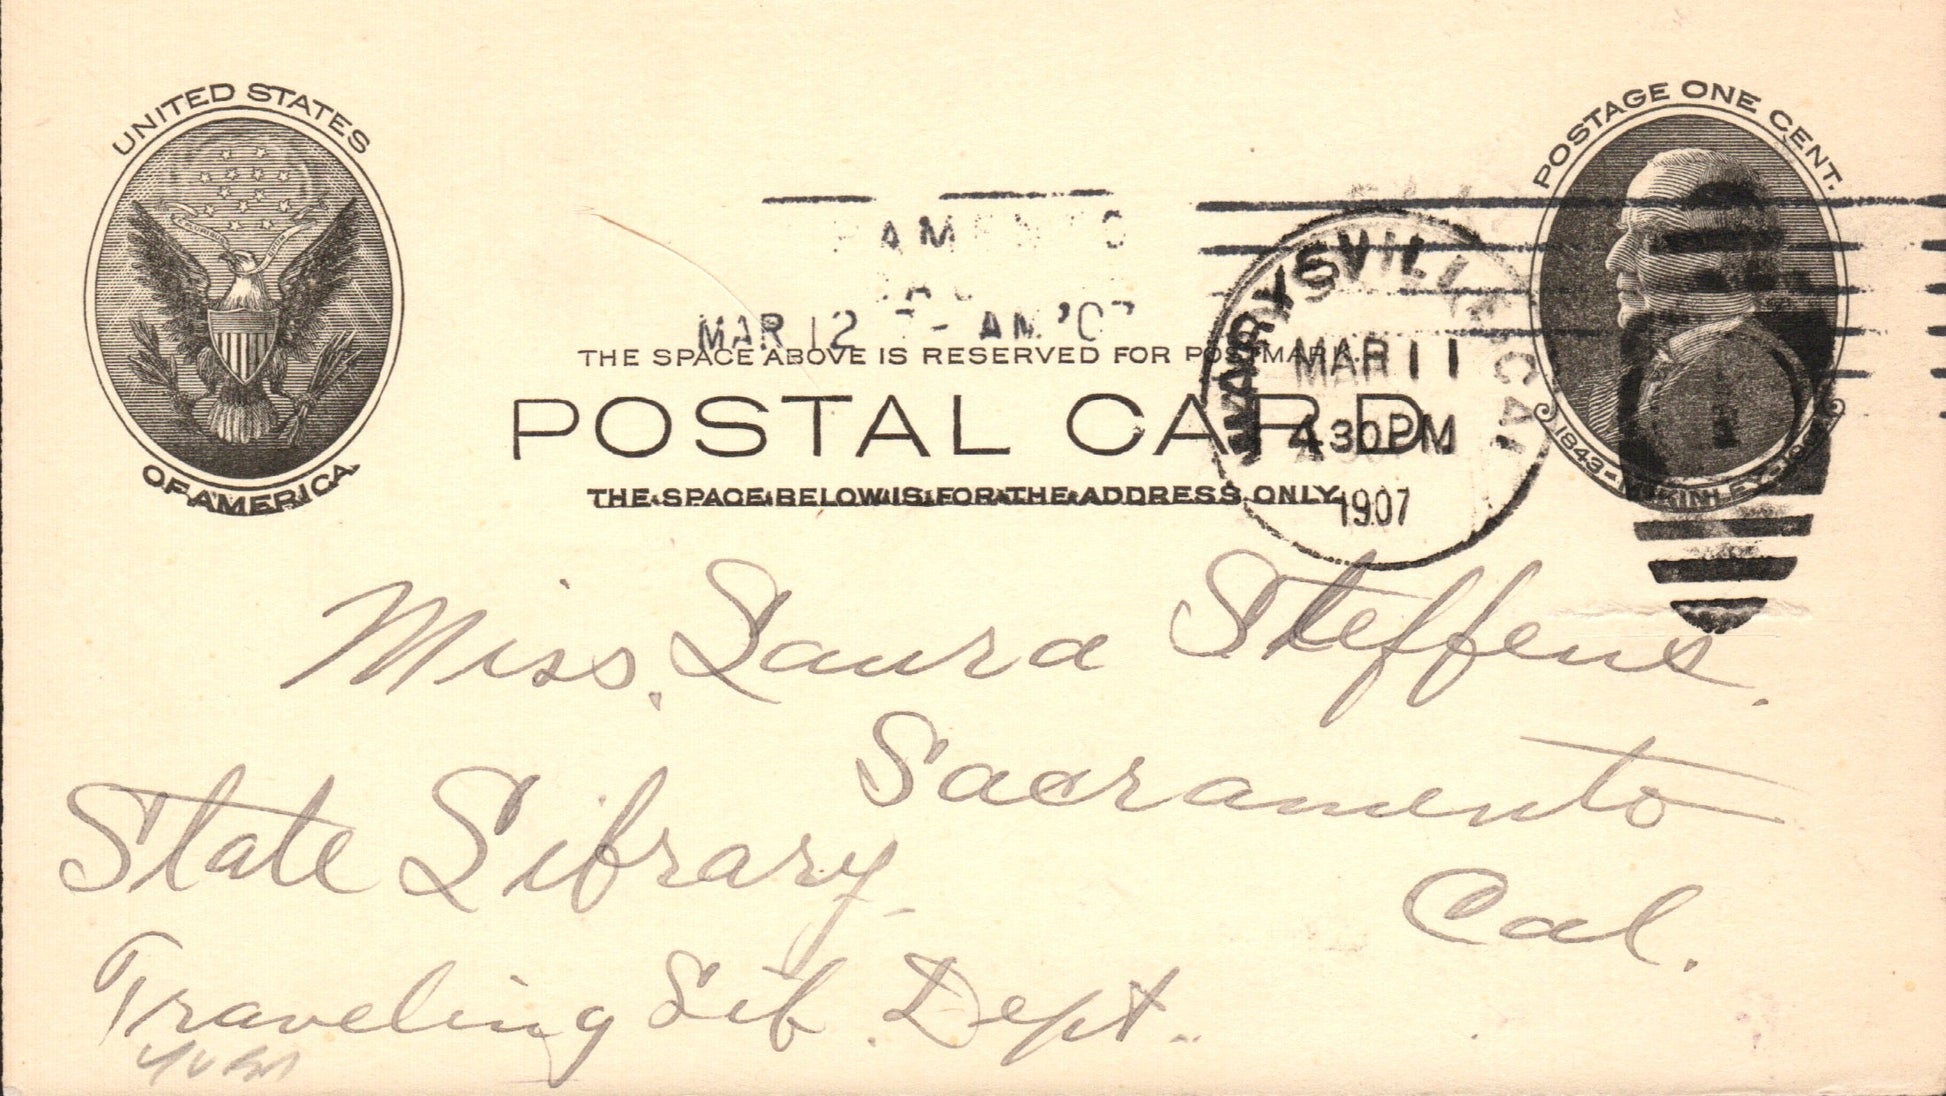 UNITED STATES
OF AMERICA.
POSTAGE ONE CENT.
1843 - McKINLEY -
MAR 12 7 - AM '07
THE SPACE ABOVE IS RESERVED FOR POSTMARK.
POSTAL CARD
THE SPACE BELOW IS FOR THE ADDRESS ONLY.
MARYSVILLE, CAL.
MAR 11
430PM
1907
Miss. Laura Steffens.
Sacramento
State Library
Cal.
Traveling Lib. Dept.